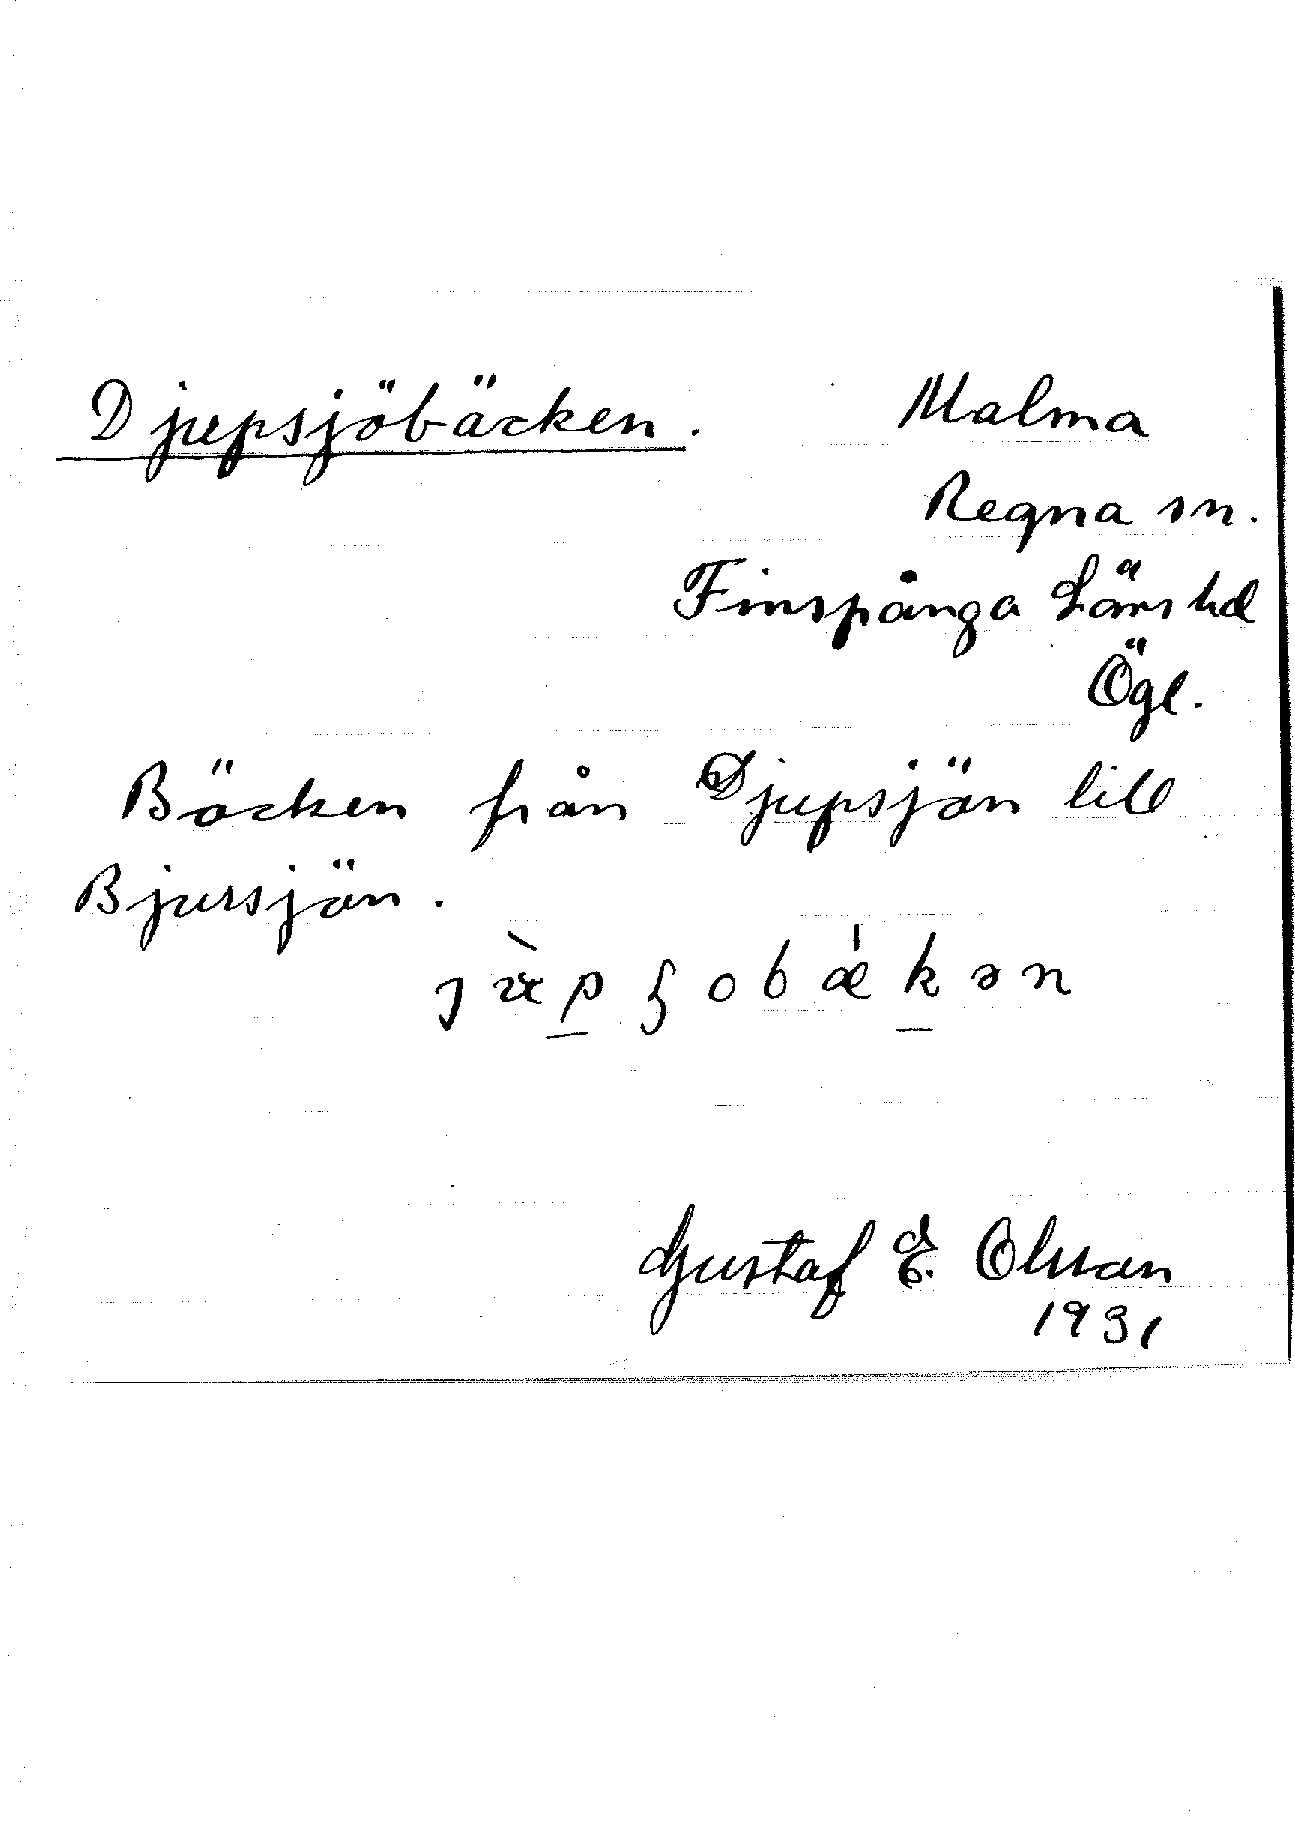 Djupsjöbäcken. Malma
Regna sn.
Finspånga Läns hd
Ögl.
Bäcken från Djupsjön till
Bjursjön.
Gustaf E. Olsson
1931